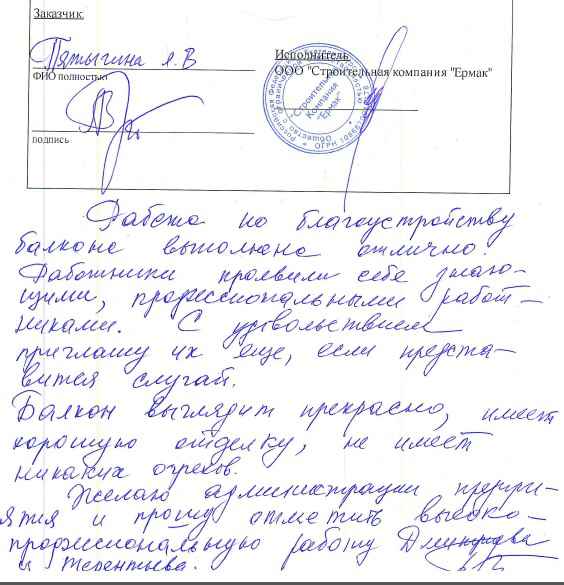 Заказчик
Пятыгина Л.В
Исполнитель
ФИО полностью
ООО "Строительная компания "Ермак"
Строительная
Компания
"Ермак"
подпись
Работа по благоустройству
балкона выполнена отлично.
Работники проявили себе знаю-
щими, профессиональными работ-
никами. С удовольствием
приглашу их еще, если предста-
вится случай.
Балкон выглядит прекрасно, имеет
хорошую отделку, не имеет
никаких огрехов.
Желаю администрации предпри-
ятия и прошу отметить высоко-
профессиональную работу Дмитриева
и Терентьева.